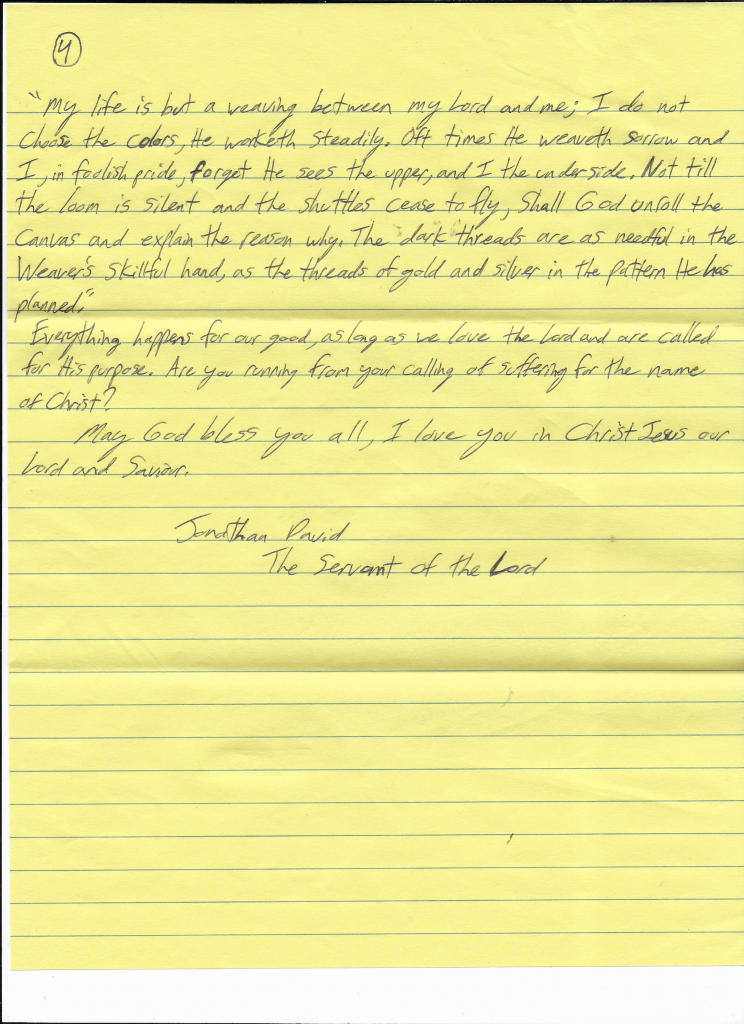 4
"My life is but a weaving between my Lord and me; I do not
choose the colors, He worketh steadily. Oft times He weaveth sorrow and
I, in foolish pride, forget He sees the upper, and I the underside. Not till
the loom is silent and the shuttles cease to fly, Shall God unroll the
Canvas and explain the reason why. The dark threads are as needful in the
Weaver's skillful hand, as the threads of gold and silver in the pattern He has
planned."
Everything happens for our good, as long as we love the Lord and are called
for His purpose. Are you running from your calling of suffering for the name
of Christ?
May God bless you all, I love you in Christ Jesus our
Lord and Saviour.
Jonathan David
The Servant of the Lord